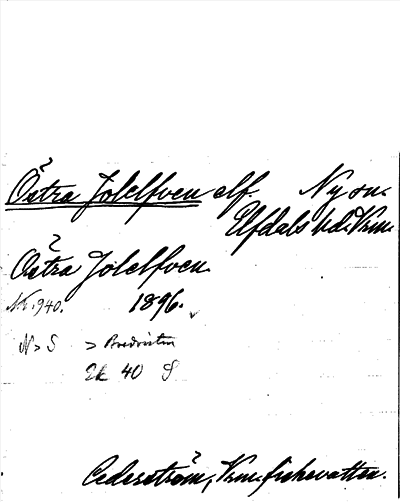 Östra Jolelfven elf. Ny sn.
Elfdals hd. Vrm.
Östra Jolelfven.
Nr. 940. 1896.
N > S >
2k 40 S
Cederström, Vrm. fiskevatten.